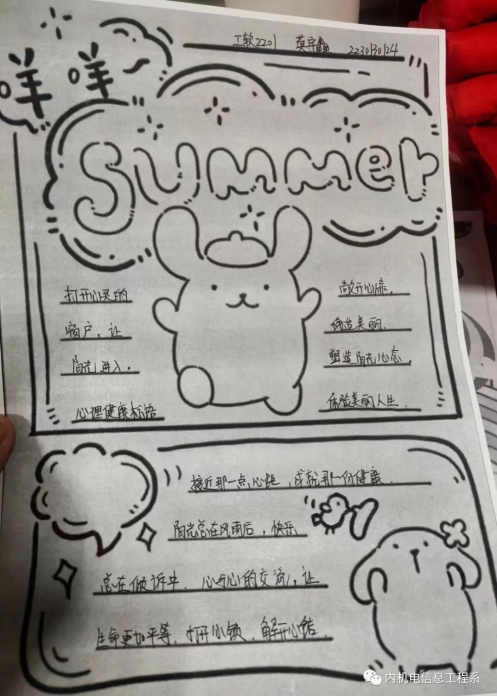 工软2201 莫宗鑫 2230130124
咩咩
Summer
打开心灵的
窗户，让
阳光进入。
心理健康标语
敞开心扉，
缔造美丽
塑造阳光心态，
体验美丽人生
接近那一点心距，成就那一份健康
阳光总在风雨后，快乐
总在倾诉中，心与心的交流，让
生命更加平等，打开心锁，解开心结
内机电信息工程系